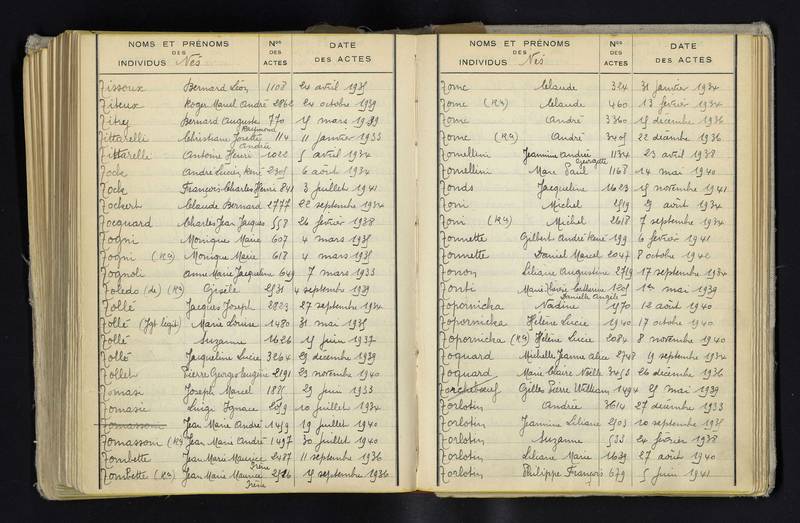 NOMS ET PRÉNOMS DES INDIVIDUS Nés
Nos DES ACTES
DATE DES ACTES
Tissoux Bernard Léon 1108 24 avril 1935
Titeux Roger Marcel André 2862 24 octobre 1939
Titrey Bernard Auguste 770 15 mars 1939
Tittarelli Christiane Josette Raymond 114 11 janvier 1933
Andrée
Tittarelli Antoine Henri 1022 5 avril 1934
Tock André Lucien René 2305 6 août 1934
Tock François Charles Henri 841 3 juillet 1941
Tockert Claude Bernard 2777 22 septembre 1934
Tocquard Charles Jean Jacques 558 26 février 1938
Togni Monique Marie 607 4 mars 1935
Togni (Ra) Monique Marie 618 4 mars 1935
Tognoli Anne Marie Jacqueline 649 7 mars 1933
Toledo (de) (Ra) Gisèle 2531 4 septembre 1939
Tollé Jacques Joseph 2823 27 septembre 1934
Tollé (Jgt legit) Marie Louise 1480 31 mai 1935
Tollé Suzanne 1626 15 juin 1937
Tollé Jacqueline Lucie 3264 29 décembre 1939
Tollet Pierre Georges Eugène 2191 23 novembre 1940
Tomasi Joseph Marcel 1885 29 juin 1933
Tomasie Luigi Ignace 2059 10 juillet 1934
Tomassoni Jean Marie André 1459 19 juillet 1940
Tomassoni (Ra) Jean Marie André 1497 30 juillet 1940
Tombette Jean Marie Maurice 2487 11 septembre 1936
Irène
Tombette (Ra) Jean Marie Maurice 2526 15 septembre 1936
Irène
NOMS ET PRÉNOMS DES INDIVIDUS Nés
Nos DES ACTES
DATE DES ACTES
Tome Claude 324 31 janvier 1934
Tome (Ra) Claude 460 13 février 1934
Tome André 3360 15 décembre 1936
Tome (Ra) André 3405 22 décembre 1936
Tomellini Jeannine Andrée 1134 23 avril 1938
Georgette
Tomellini Marc Paul 1168 14 mai 1940
Tonds Jacqueline 1623 15 novembre 1941
Toni Michel 2519 29 août 1934
Toni (Ra) Michel 2618 7 septembre 1934
Tonnette Gilbert André René 199 6 février 1941
Tonnette Daniel Marcel 2047 8 octobre 1942
Tonon Liliane Augustine 2719 17 septembre 1934
Tonti Marie Claire Catherine 1201 1er mai 1939
Danielle Angèle
Topornicha Nadine 1570 12 août 1940
Topornicha Hélène Lucie 1940 17 octobre 1940
Topornicha (Ra) Hélène Lucie 2084 8 novembre 1940
Toquard Michelle Jeanne Alice 2748 19 septembre 1934
Toquard Marie Claire Noëlle 3455 26 décembre 1936
Torchebœuf Gilles Pierre William 1494 25 mai 1939
Torlotin Andrée 3614 27 décembre 1933
Torlotin Jeannine Liliane 2503 10 septembre 1935
Torlotin Suzanne 533 24 février 1938
Torlotin Liliane Marie 1639 27 août 1940
Torlotin Philippe François 679 5 juin 1941